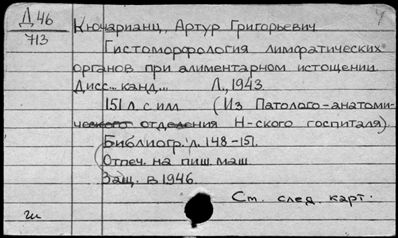 Д 46
713
Кючарианц, Артур Григорьевич
Гистоморфология лимфатических
органов при алиментарном истощении.
Дисс... канд... Л., 1943.
151 л. с илл. (Из Патолого-анатоми-
ческого отделения Н-ского госпиталя)
Библиогр. л. 148-151.
Отпеч. на пиш. маш.
Защ. в 1946.
См. след. карт.